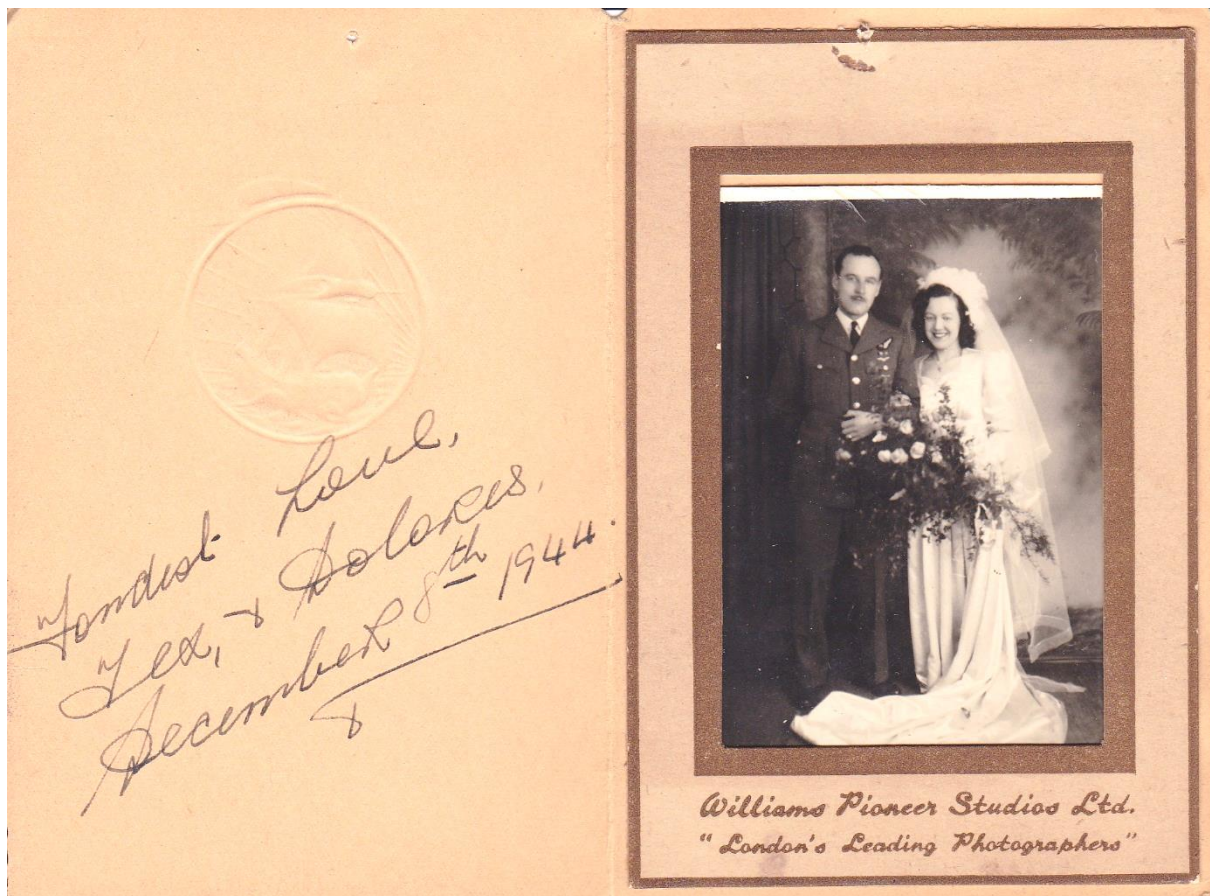 Fondest Love,
Tex, & Dolores.
December 8th 1944.
Williams Pioneer Studios Ltd.
"London's Leading Photographers"